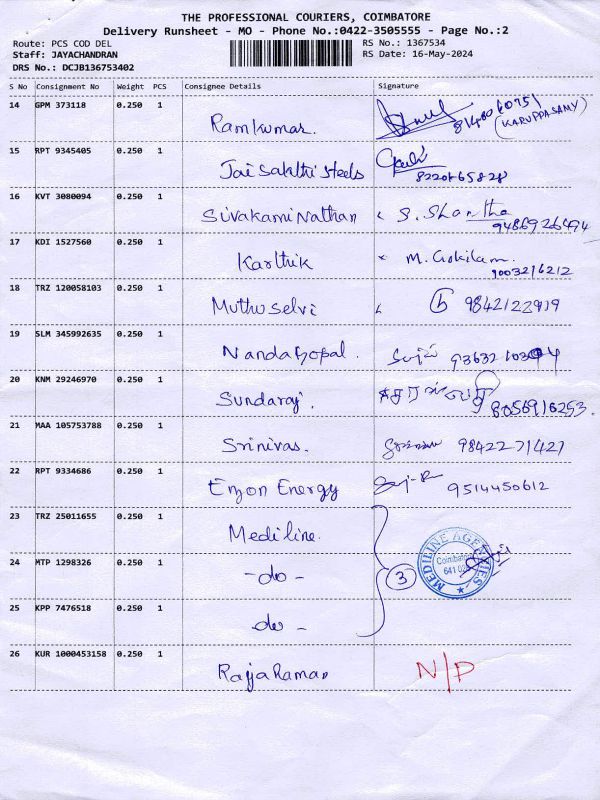 THE PROFESSIONAL COURIERS, COIMBATORE
Delivery Runsheet - MO - Phone No.:0422-3505555 - Page No.:2
Route: PCS COD DEL RS No.: 1367534
Staff: JAYACHANDRAN RS Date: 16-May-2024
DRS No.: DCJB136753402
S No Consignment No Weight PCS Consignee Details Signature
14 GPM 373118 0.250 1 Ramkumar. (KARUPPASAMY)
15 RPT 9345405 0.250 1 Jai Sakthi Steels 8220865828
16 KVT 3080094 0.250 1 Sivakami Nathan S. Shantha
9486926494
17 KDI 1527560 0.250 1 Karthik M. Gokilam.
9003216212
18 TRZ 120058103 0.250 1 Muthu Selvi 9842122919
19 SLM 345992635 0.250 1 Nandagopal.
20 KNM 29246970 0.250 1 Sundaraj. 8056916253.
21 MAA 105753788 0.250 1 Srinivas. 9842271427
22 RPT 9334686 0.250 1 Enzon Energy 9514450612
23 TRZ 25011655 0.250 1 Mediline.
24 MTP 1298326 0.250 1 -do- 3 MEDILINE AGENCIES Coimbatore 641 02
25 KPP 7476518 0.250 1 do -
26 KUR 1000453158 0.250 1 Rajja Raman N/P